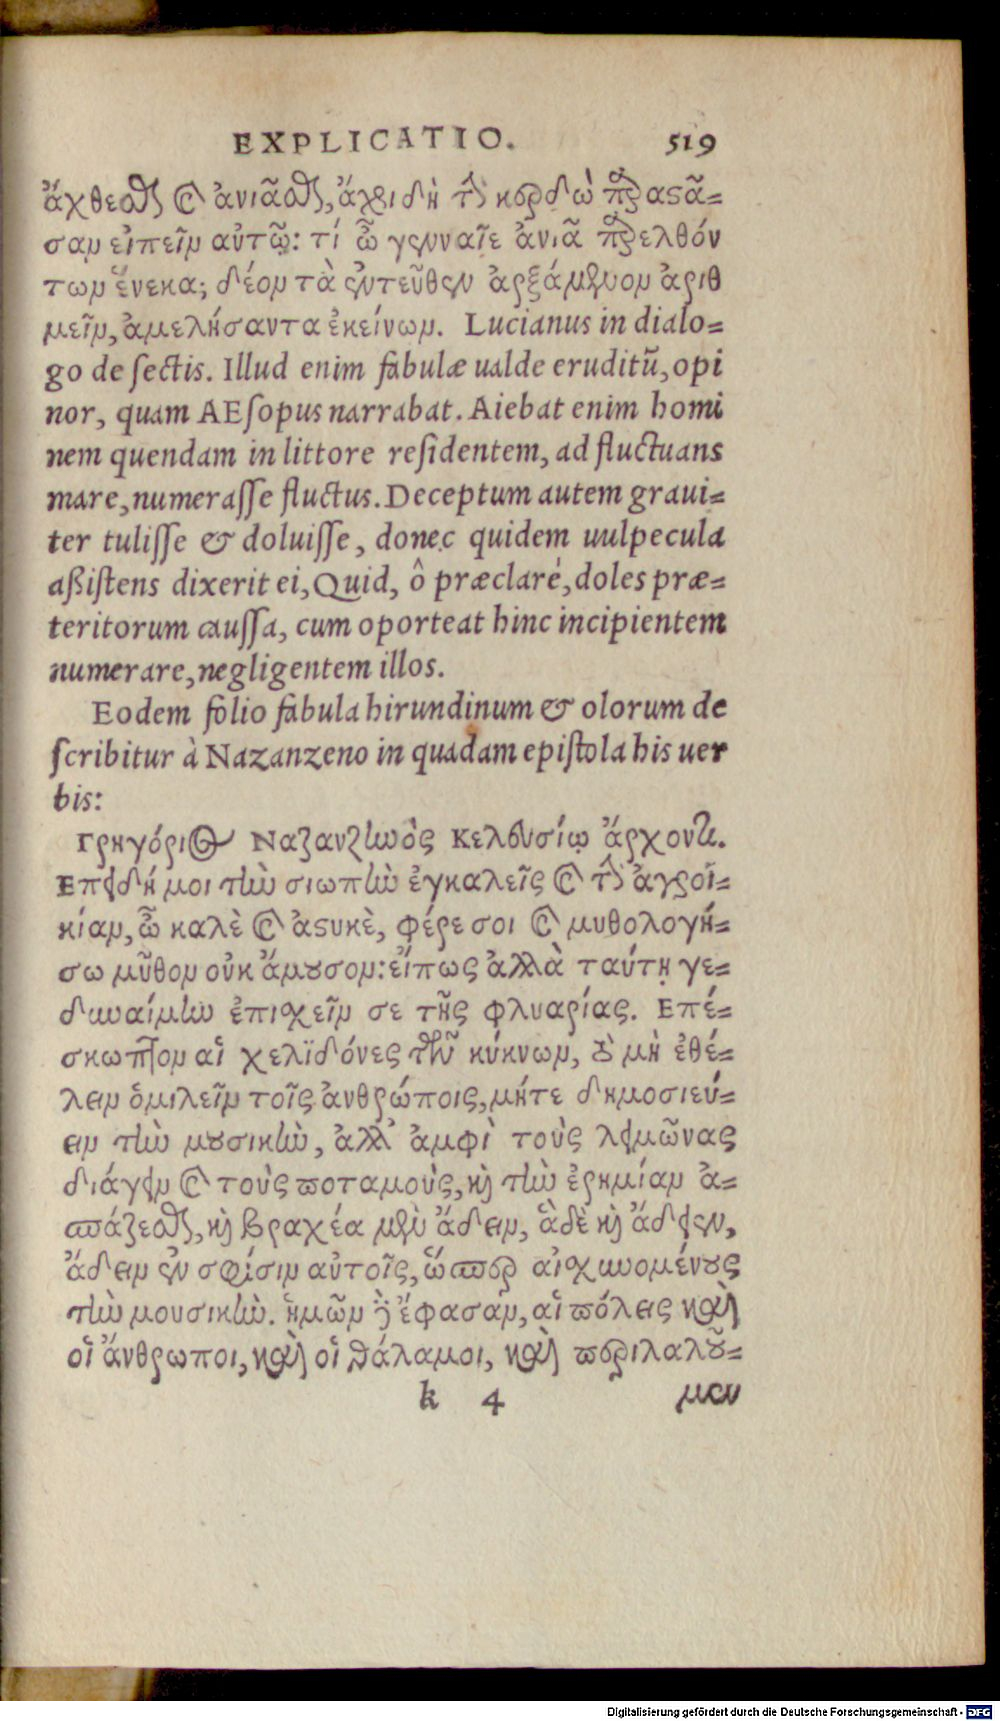 EXPLICATIO. 519
ἄχθεσθαι καὶ ἀνιᾶσθαι, ἄχρι δὴ τὴν κερδὼ παραστᾶ-
σαν εἰπεῖν αὐτῷ: τί ὦ γενναῖε ἀνιᾷ παρελθόν
των ἕνεκα; δέον τὰ ἐντεῦθεν ἀρξάμενον ἀριθ
μεῖν, ἀμελήσαντα ἐκείνων. Lucianus in dialo=
go de sectis. Illud enim fabulæ ualde eruditū, opi
nor, quam AEsopus narrabat. Aiebat enim homi
nem quendam in littore residentem, ad fluctuans
mare, numerasse fluctus. Deceptum autem graui=
ter tulisse & doluisse, donec quidem uulpecula
aßistens dixerit ei, Quid, ô præclare, doles præ=
teritorum caussa, cum oporteat hinc incipientem
numerare, negligentem illos.
Eodem folio fabula hirundinum & olorum de
scribitur à Nazanzeno in quadam epistola his uer
bis:
Γρηγόριος Ναζανζηνὸς Κελευσίῳ ἄρχοντι.
Επειδή μοι τὴν σιωπὴν ἐγκαλεῖς καὶ τὴν ἀγροι-
κίαν, ὦ καλὲ καὶ ἀστυκὲ, φέρε σοι καὶ μυθολογή-
σω μῦθον οὐκ ἄμουσον: εἴπως ἀλλὰ ταύτῃ γε-
δυναίμην ἐπισχεῖν σε τῆς φλυαρίας. Επέ-
σκωπτον αἱ χελιδόνες τῶν κύκνων, τὸ μὴ ἐθέ-
λειν ὁμιλεῖν τοῖς ἀνθρώποις, μήτε δημοσιεύ-
ειν τὴν μουσικὴν, ἀλλ' ἀμφὶ τοὺς λειμῶνας
διάγειν καὶ τοὺς ποταμοὺς, καὶ τὴν ἐρημίαν ἀ-
σπάζεσθαι, καὶ βραχέα μὲν ᾄδειν, ἃ δὲ καὶ ᾄδειεν,
ᾄδειν ἐν σφίσιν αὐτοῖς, ὥσπερ αἰσχυνομένους
τὴν μουσικήν. ἡμῶν δὲ ἔφασαν, αἱ πόλεις καὶ
οἱ ἄνθρωποι, καὶ οἱ θάλαμοι, καὶ περιλαλοῦ-
k 4 μεν
Digitalisierung gefördert durch die Deutsche Forschungsgemeinschaft - DFG